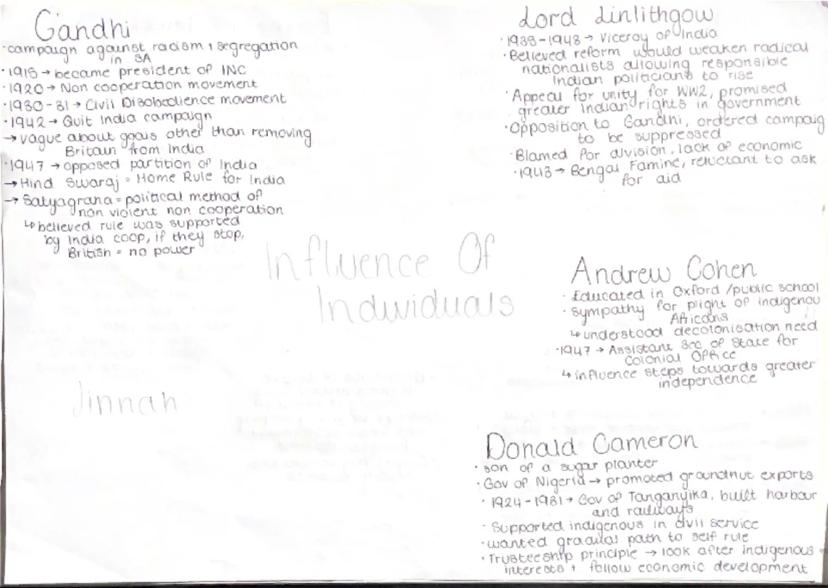 Gandhi
·campaign against racism, segregation
in SA
·1915→ became president of INC
·1920→ Non cooperation movement
·1930-31→ Civil Disobedience movement
·1942→ Quit India campaign
→ vague about goals other than removing
Britain from India
·1947→ opposed partition of India
→ Hind Swaraj = Home Rule for India
→ Satyagrana = political method of
non violent non cooperation
↳believed rule was supported
by India coop, if they stop,
British = no power
Lord Linlithgow
·1936-1943→ Viceroy of India
·Believed reform would weaken radical
nationalists allowing responsible
Indian politicians to rise
·Appeal for unity for WW2, promised
greater Indian rights in government
·Opposition to Gandhi, ordered campaig
to be suppressed
·Blamed for division, lack of economic
·1943→ Bengal Famine, reluctant to ask
for aid
Influence Of
Individuals
Andrew Cohen
· Educated in Oxford /public school
· sympathy for plight of indigenou
Africans
↳understood decolonisation need
·1947→ Assistant Sec of State for
Colonial Office
↳ influence steps towards greater
independence
Jinnah
Donald Cameron
· son of a sugar planter
· Gov of Nigeria → promoted groundnut exports
· 1924-1931→ Gov of Tanganyika, built harbour
and railways
· Supported indigenous in civil service
· wanted gradual path to self rule
· Trusteeship principle → look after indigenous
interests + follow economic development